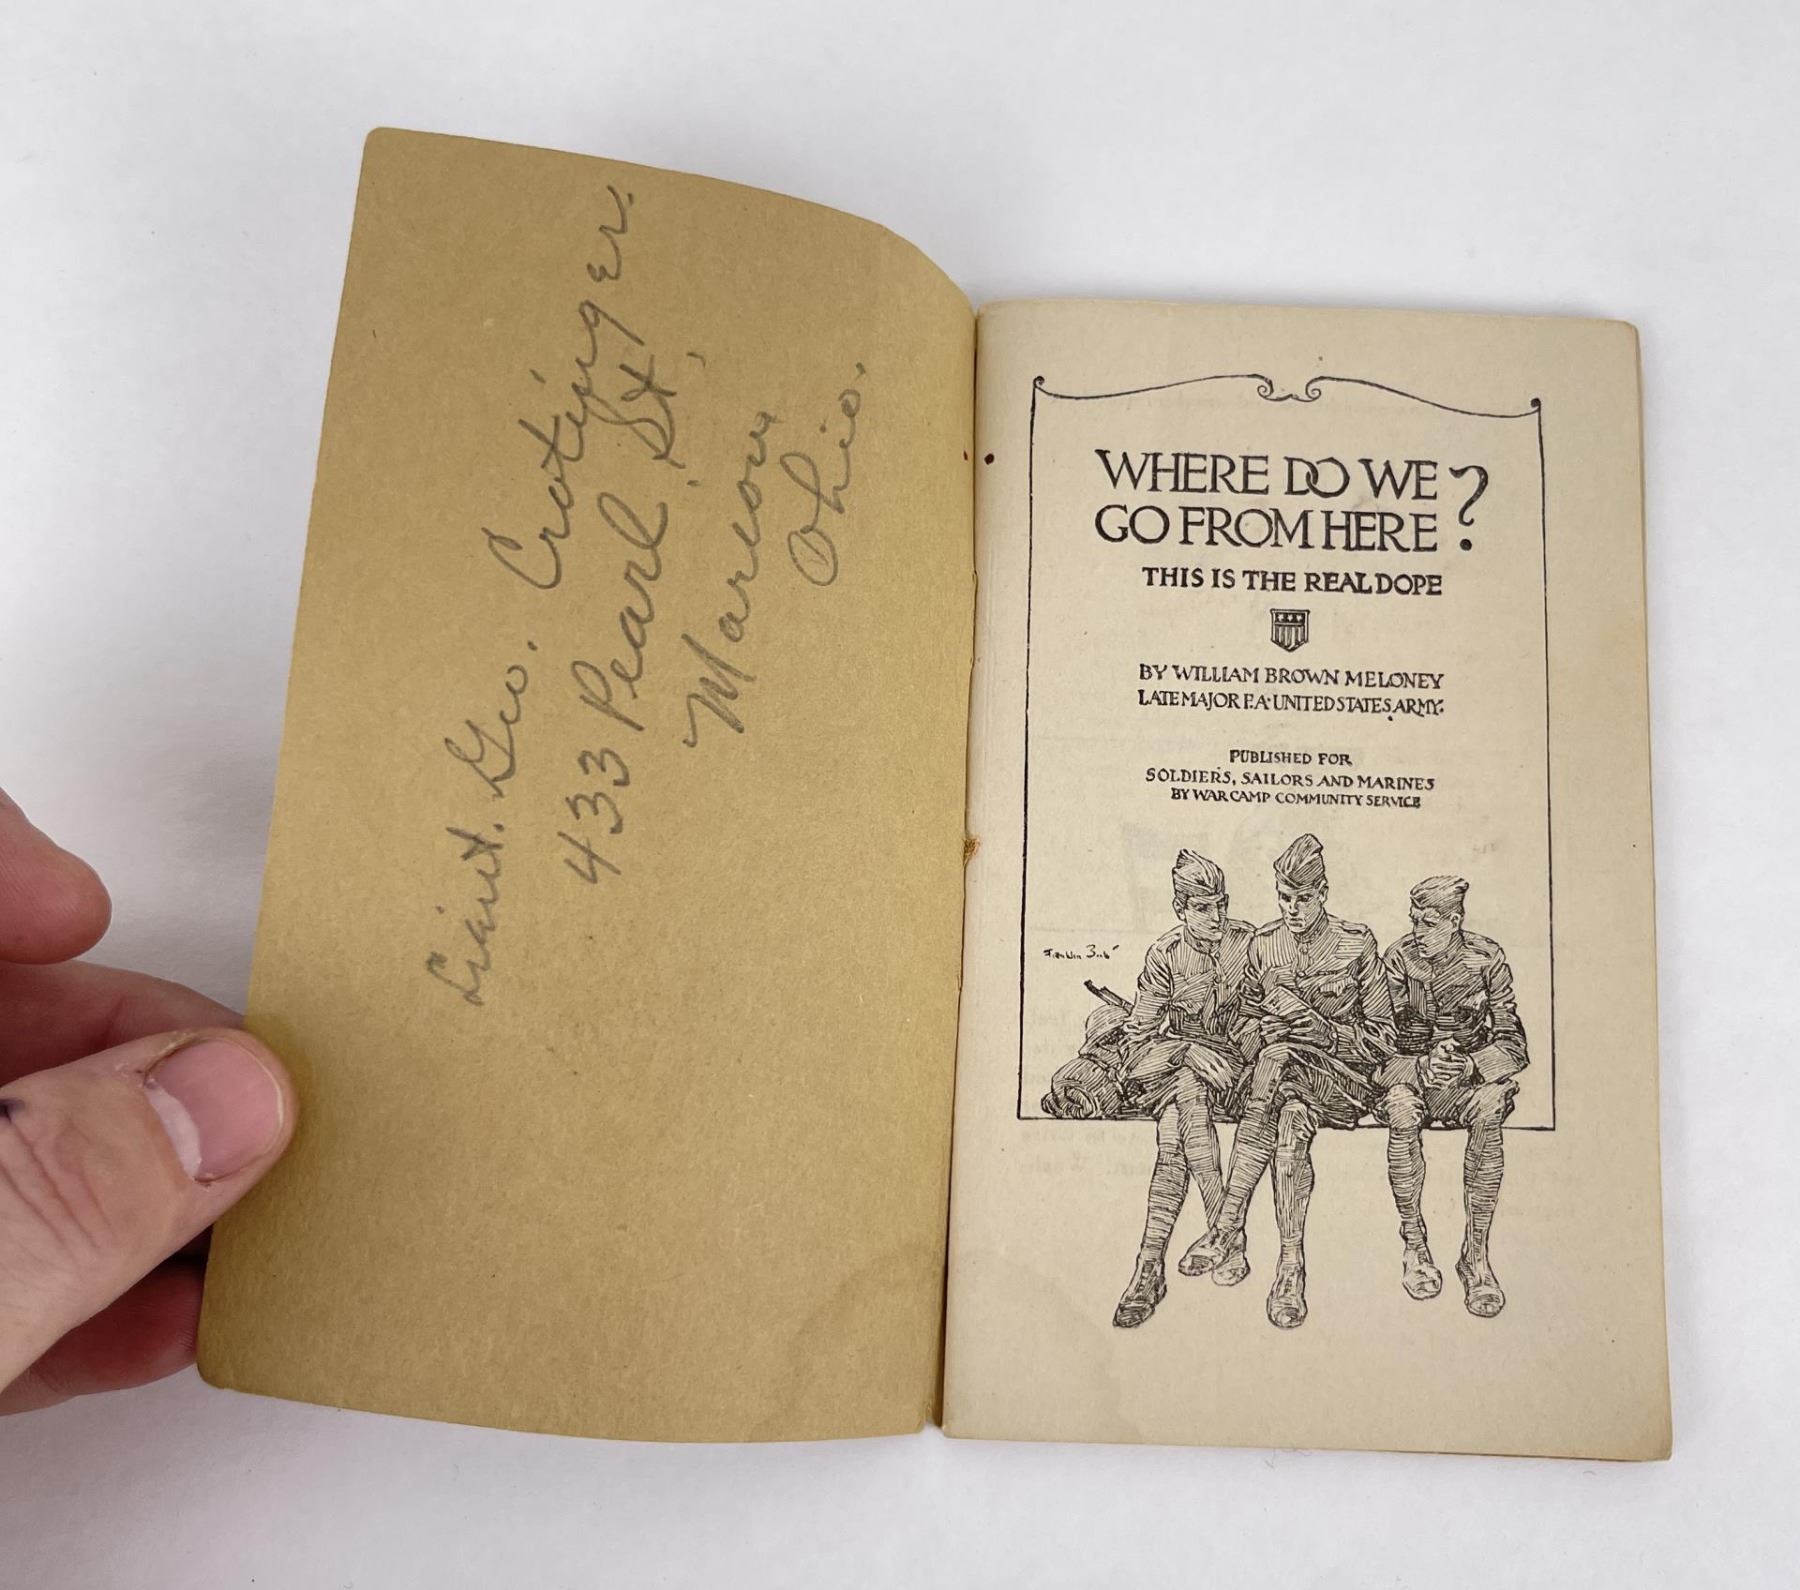 Lieut. Geo. Crotinger.
433 Pearl St.
Marion
Ohio.
WHERE DO WE
GO FROM HERE?
THIS IS THE REAL DOPE
BY WILLIAM BROWN MELONEY
LATE MAJOR F.A. UNITED STATES ARMY.
PUBLISHED FOR
SOLDIERS, SAILORS AND MARINES
BY WAR CAMP COMMUNITY SERVICE